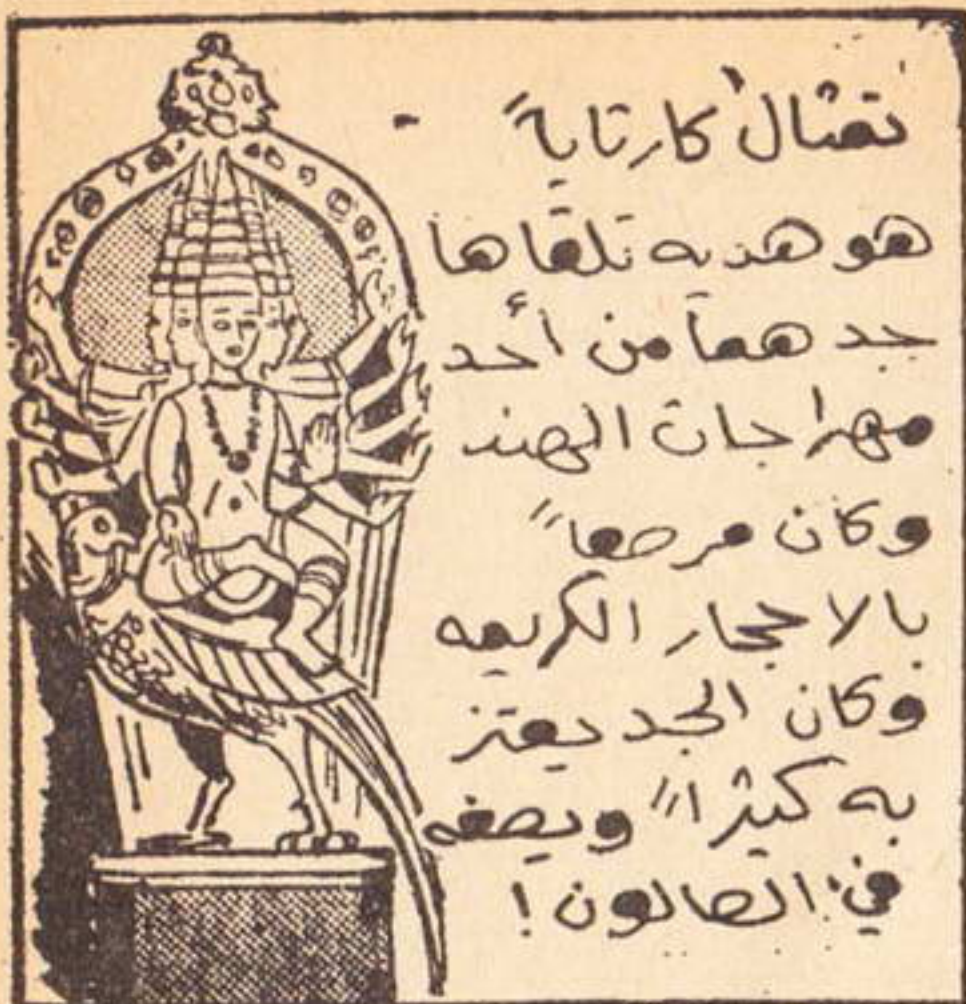 تمثال كارتايا" -
هو هديه تلقاها
جدهما من أحد
مهراجات الهند
وكان مرصعا"
بالاحجار الكريمه
وكان الجد يعتز
به كثيرا" ويضعه
في الصالون !